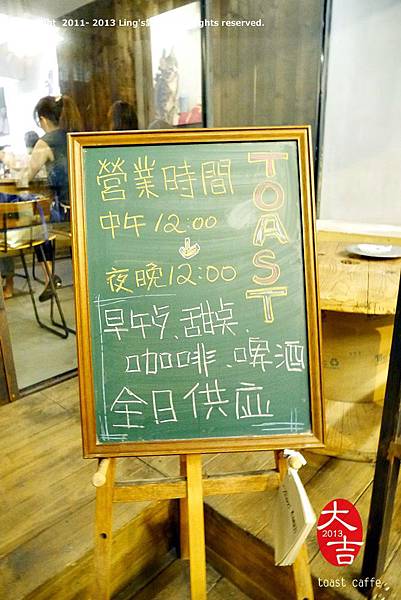 2011- 2013 Ling's
rights reserved.
TOAST
營業時間
中午 12:00
↓
夜晚 12:00
早午夕、甜桌、
咖啡、啤酒
全日供应
大吉
2013
toast caffe